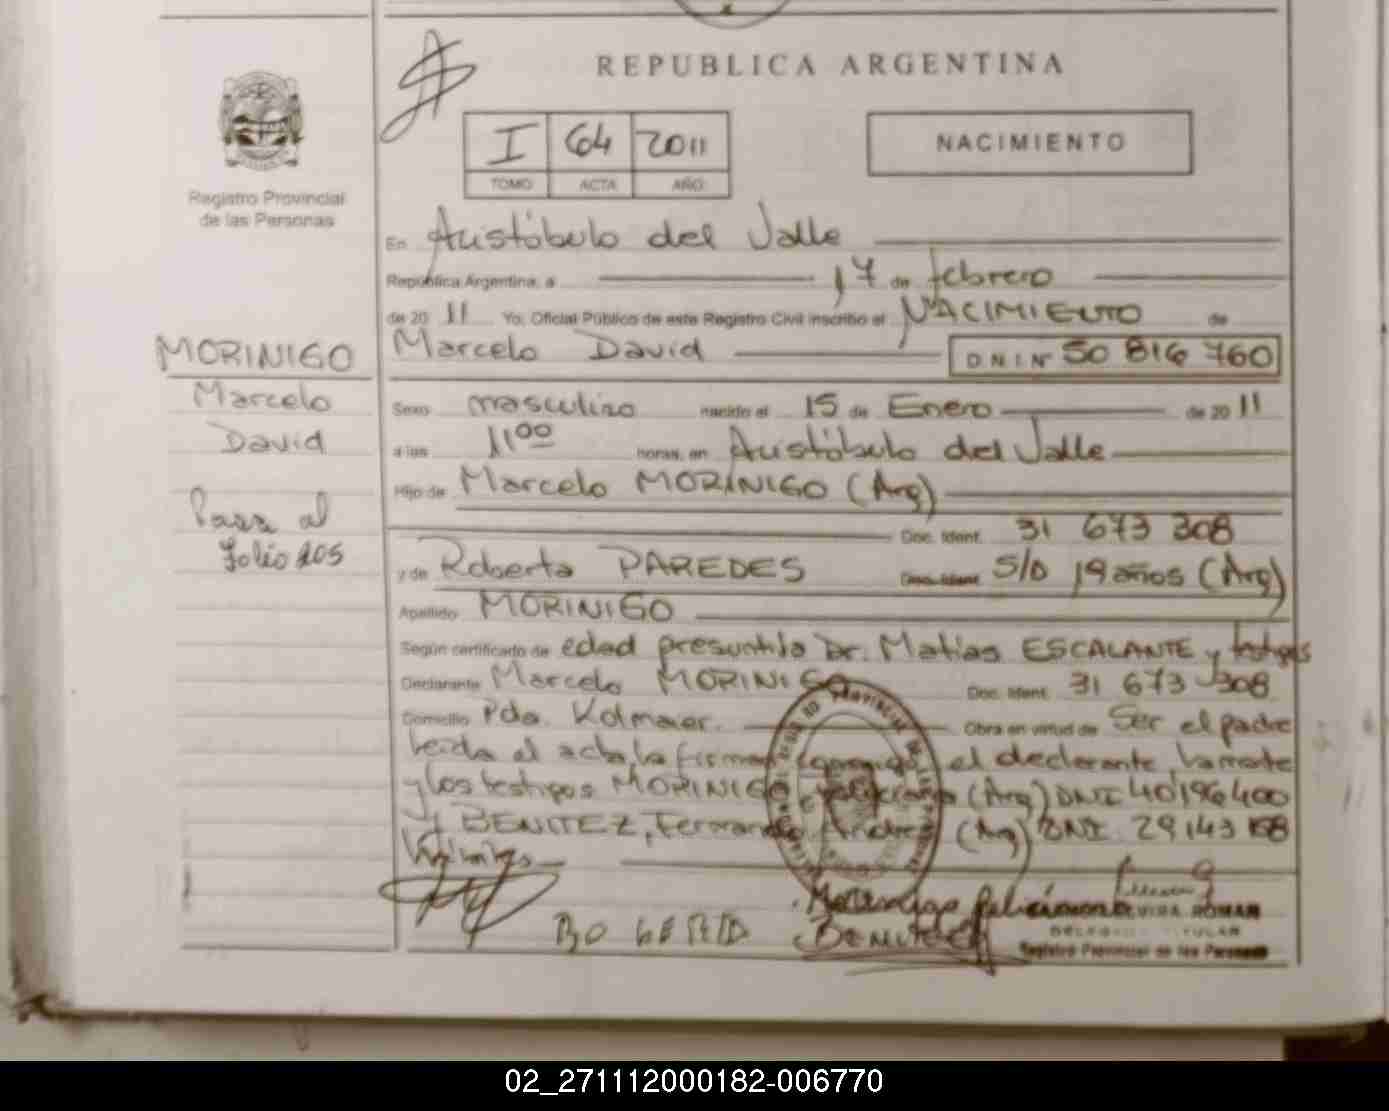 REPUBLICA ARGENTINA
I 64 2011
TOMO ACTA AÑO
NACIMIENTO
Registro Provincial
de las Personas
En Aristóbulo del Valle
República Argentina, a 17 de febrero
de 20 11 Yo, Oficial Público de este Registro Civil inscribo el NACIMIENTO de
Marcelo David D.N.I. Nº 50 816 760
MORINIGO
Marcelo
David
Pasa al
folio 205
Sexo masculino nacido el 15 de Enero de 20 11
a las 11 00 horas, en Aristóbulo del Valle
Hijo de Marcelo MORINIGO (Arg)
Doc. Ident. 31 673 308
y de Roberta PAREDES Doc. Ident. S/D 19 años (Arg)
Apellido MORINIGO
Según certificado de edad presuntiva Dr. Matías ESCALANTE y testigos
Declarante Marcelo MORINIGO Doc. Ident. 31 673 308
Domicilio Pdo. Kolmaier. Obra en virtud de Ser el padre
leída el acta, la firman conmigo, el declarante, la madre
y los testigos MORINIGO (Arg) DNI 40196400
y BENITEZ, Fernando Andres (Arg) DNI. 29 143
BENITEZ
ELVIRA ROMAN
DELEGADA TITULAR
Registro Provincial de las Personas
02_271112000182-006770